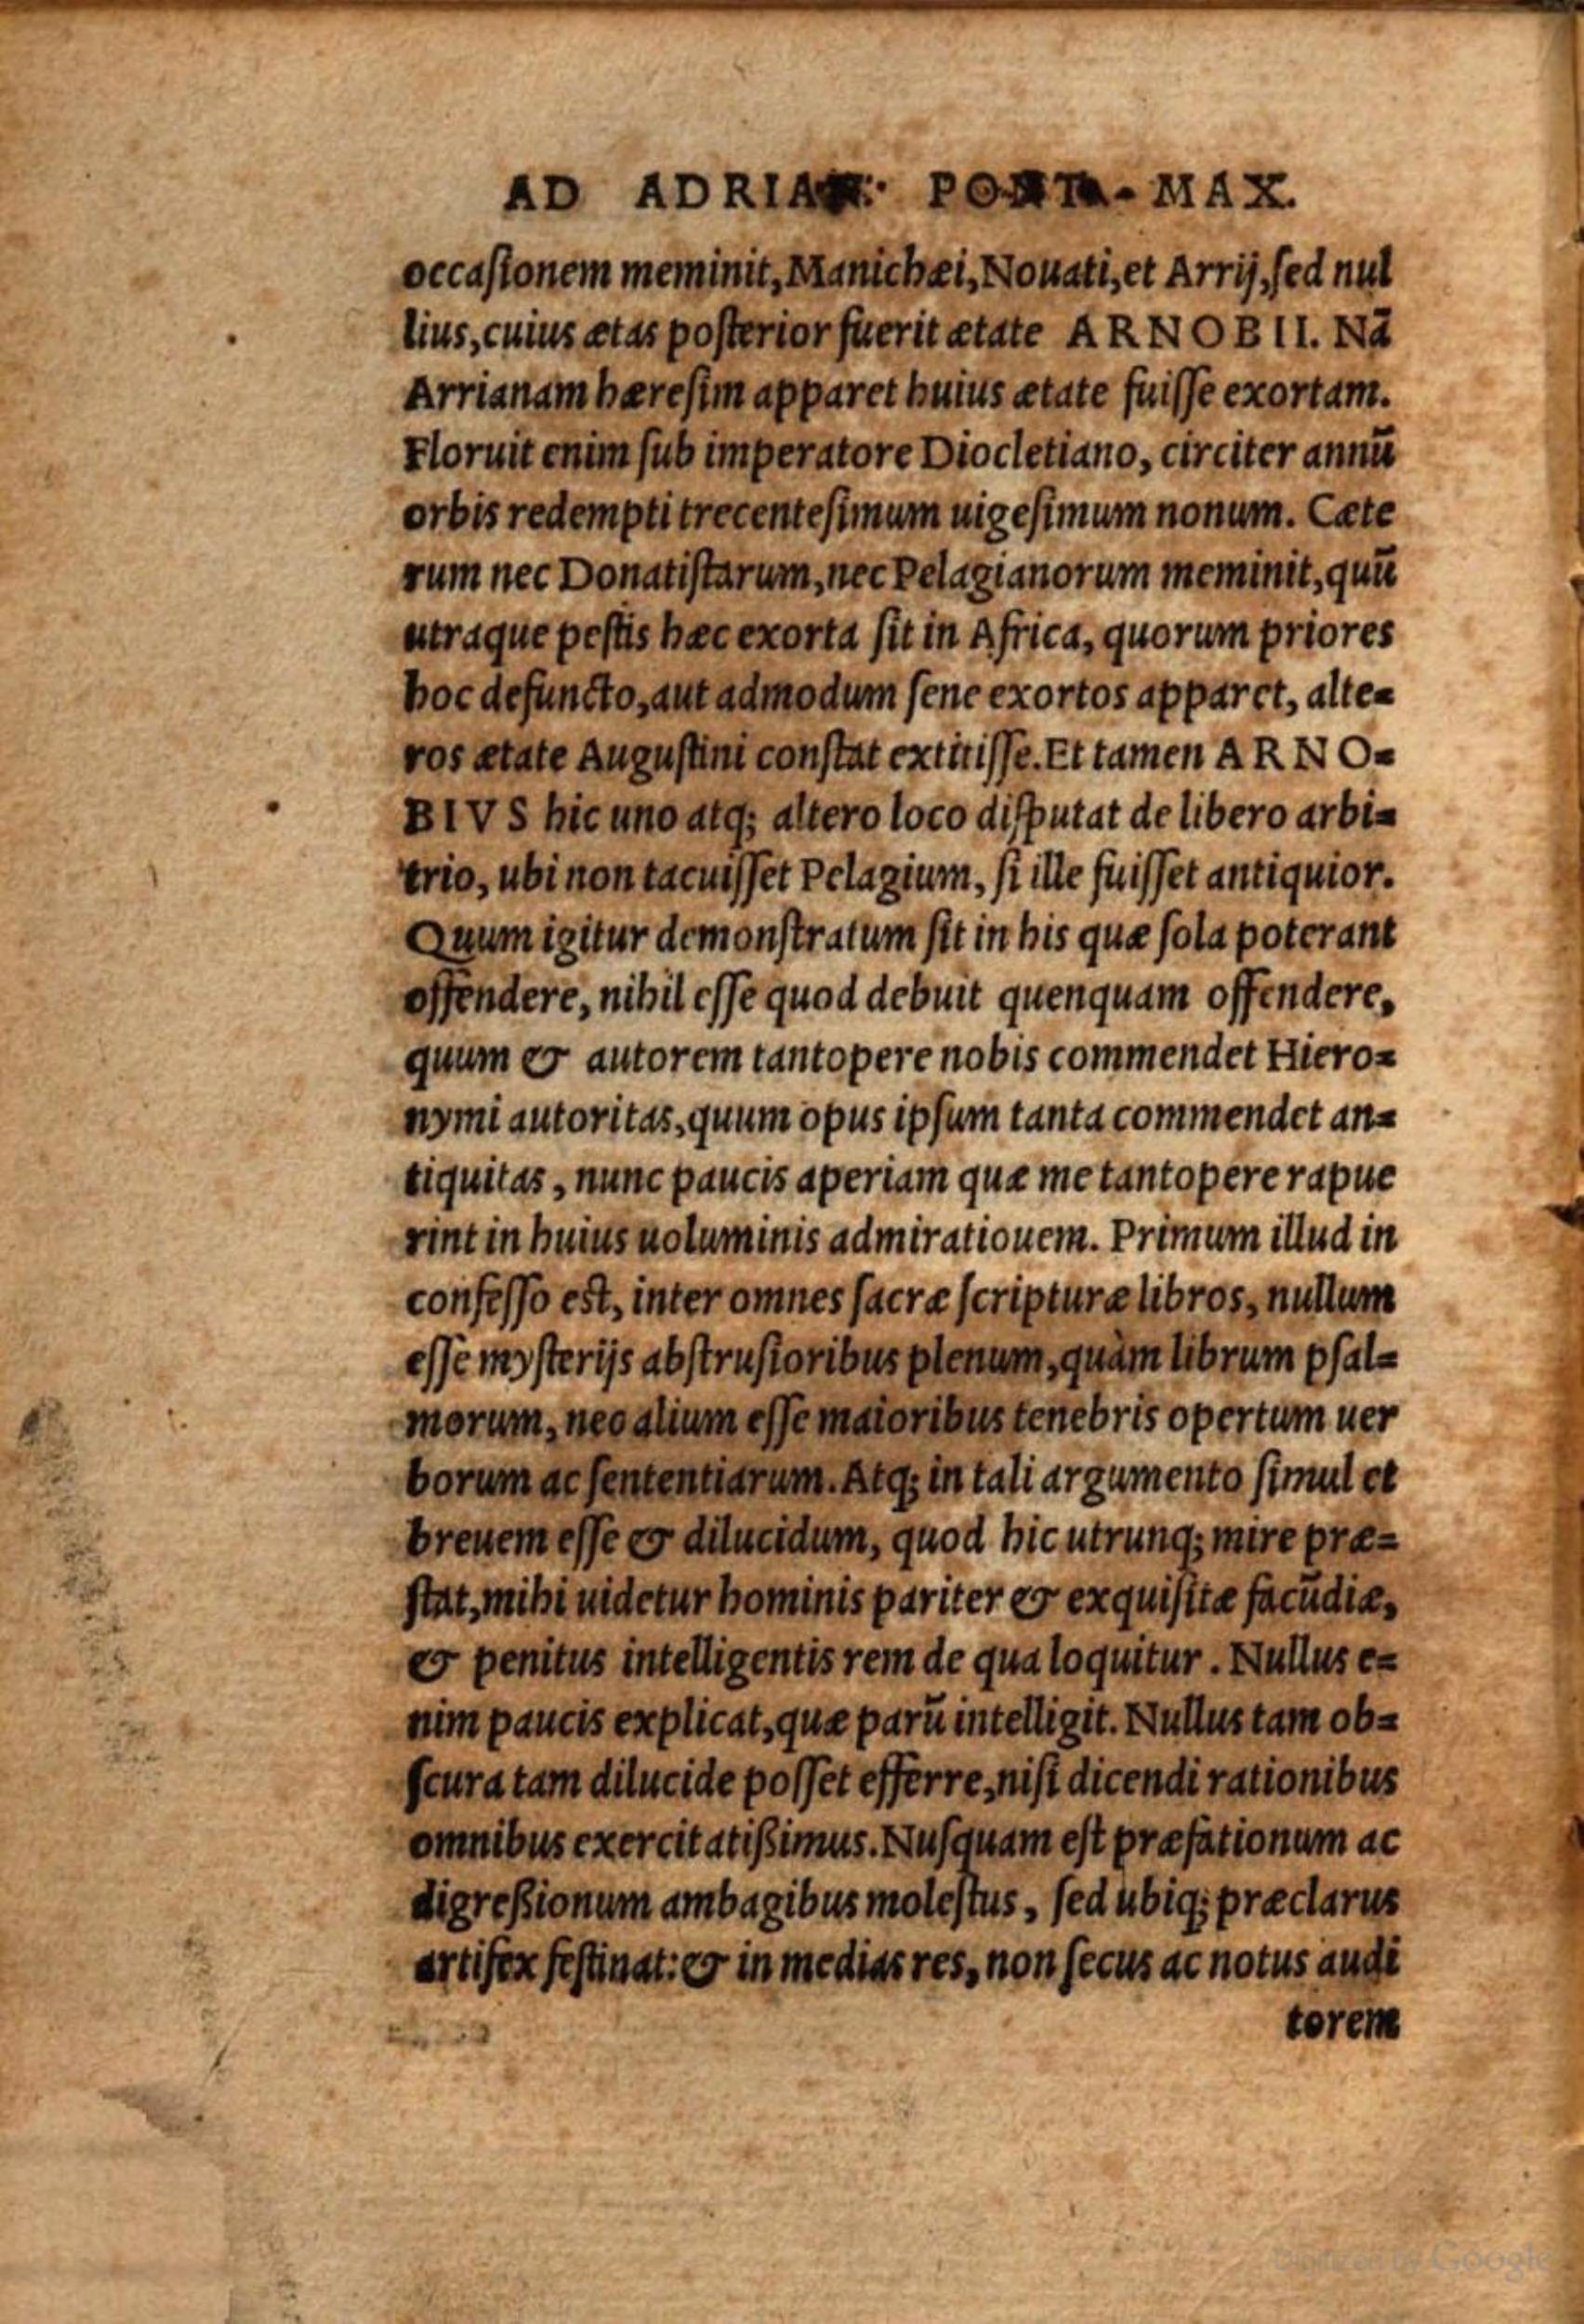 AD ADRIAN. PONT. MAX.
occaſionem meminit, Manichæi, Nouati, et Arrij, ſed nul
lius, cuius ætas poſterior fuerit ætate ARNOBII. Nā
Arrianam hæreſim apparet huius ætate fuiſſe exortam.
Floruit enim ſub imperatore Diocletiano, circiter annū
orbis redempti trecenteſimum uigeſimum nonum. Cæte
rum nec Donatiſtarum, nec Pelagianorum meminit, quū
utraque peſtis hæc exorta ſit in Africa, quorum priores
hoc defuncto, aut admodum ſene exortos apparet, alte=
ros ætate Auguſtini conſtat extitiſſe. Et tamen ARNO=
BIVS hic uno atq; altero loco diſputat de libero arbi=
trio, ubi non tacuiſſet Pelagium, ſi ille fuiſſet antiquior.
Quum igitur demonſtratum ſit in his quæ ſola poterant
offendere, nihil eſſe quod debuit quenquam offendere,
quum & autorem tantopere nobis commendet Hiero=
nymi autoritas, quum opus ipſum tanta commendet an=
tiquitas, nunc paucis aperiam quæ me tantopere rapue
rint in huius uoluminis admiratiouem. Primum illud in
confeſſo eſt, inter omnes ſacræ ſcripturæ libros, nullum
eſſe myſterijs abſtruſioribus plenum, quàm librum pſal=
morum, nec alium eſſe maioribus tenebris opertum uer
borum ac ſententiarum. Atq; in tali argumento ſimul et
breuem eſſe & dilucidum, quod hic utrunq; mire præ=
ſtat, mihi uidetur hominis pariter & exquiſitæ facūdiæ,
& penitus intelligentis rem de qua loquitur. Nullus e=
nim paucis explicat, quæ parū intelligit. Nullus tam ob=
ſcura tam dilucide poſſet efferre, niſi dicendi rationibus
omnibus exercitatißimus. Nuſquam eſt præfationum ac
digreßionum ambagibus moleſtus, ſed ubiq; præclarus
artifex feſtinat: & in medias res, non ſecus ac notus audi
torem
Digitized by Google